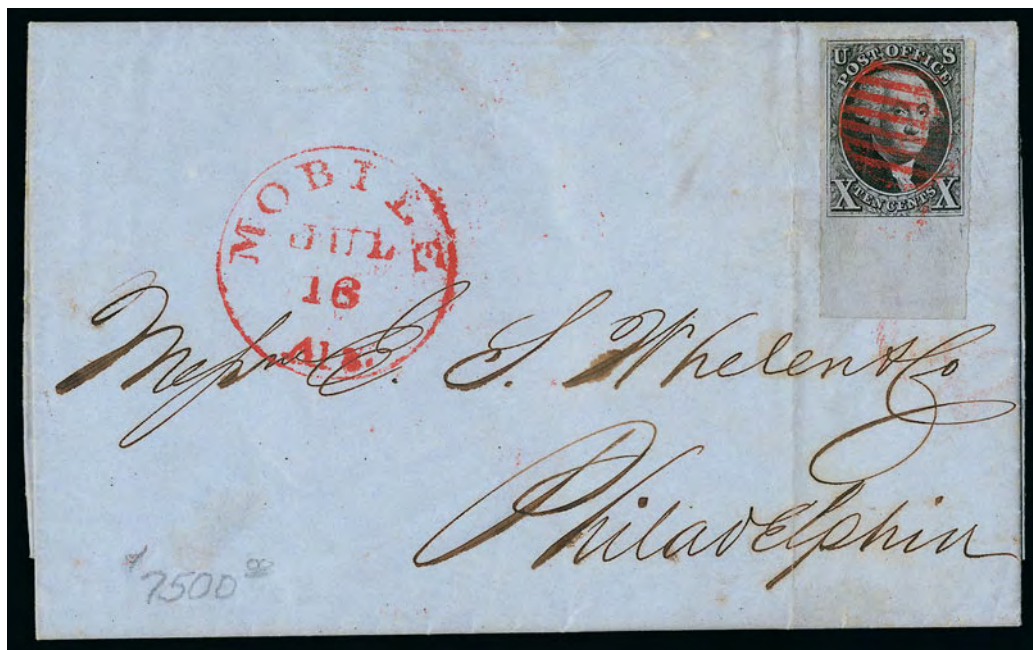 U S
POST OFFICE
X TEN CENTS X
MOBILE
JUL
16
Ala.
Messrs E. S. Whelen & Co
Philadelphia
$7500 00